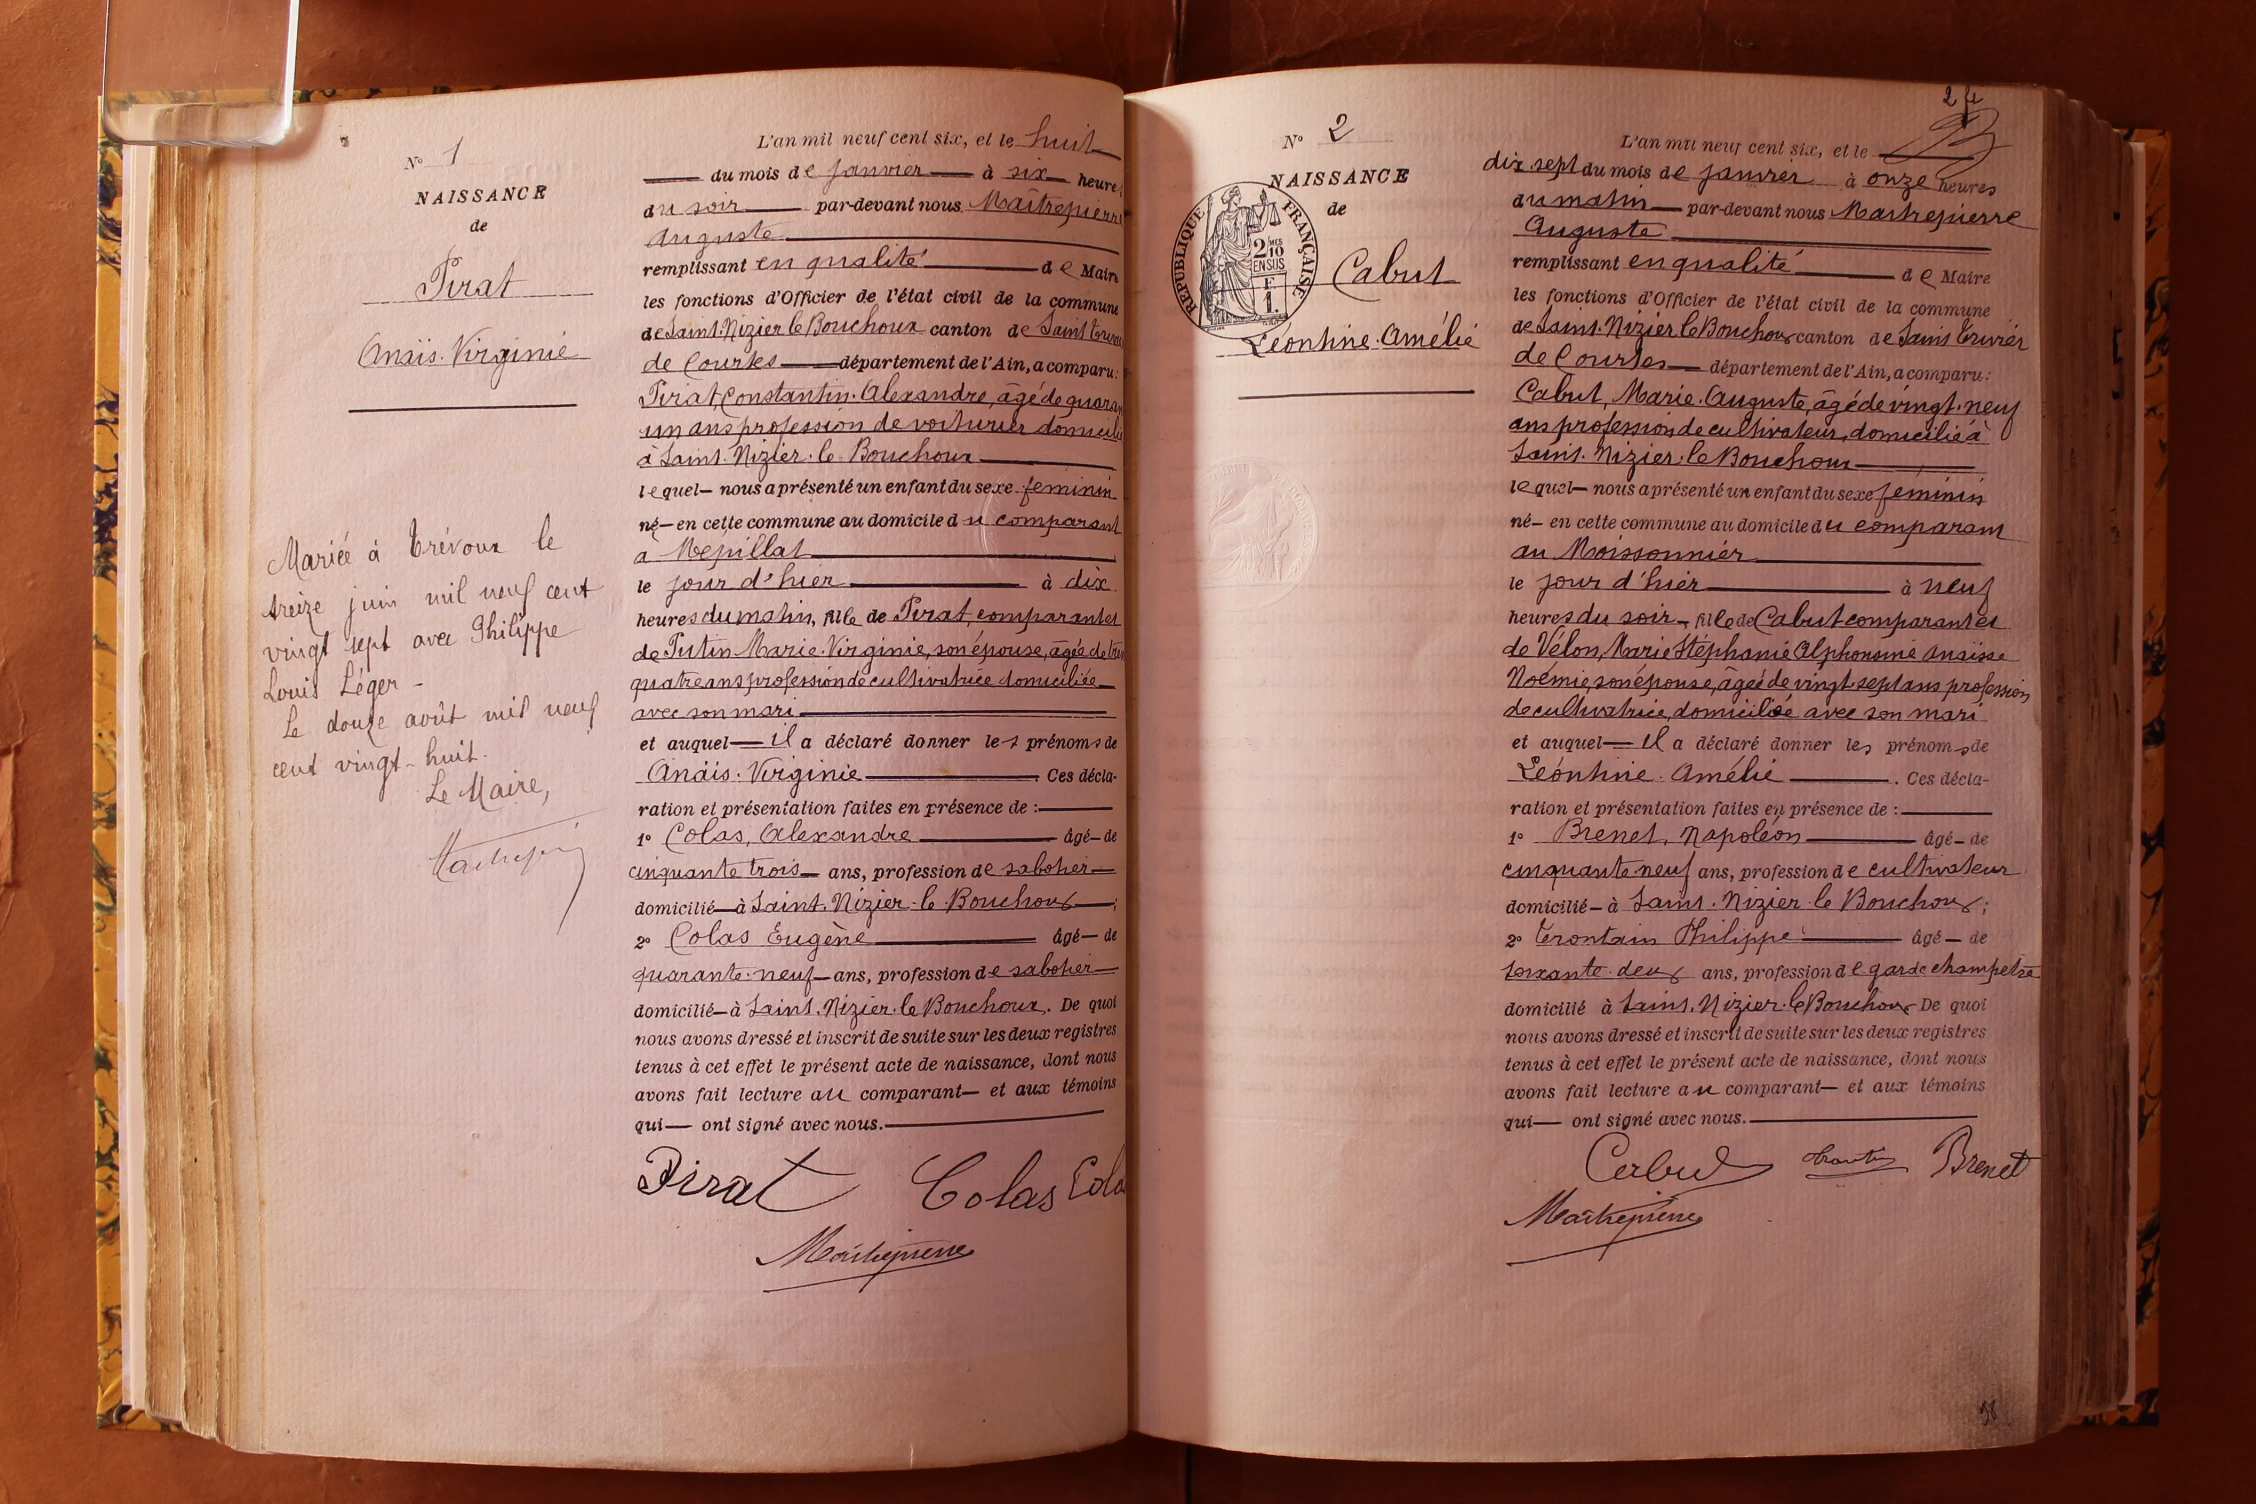 Nº 1
NAISSANCE
de
Pirat
Anaïs. Virginie
Mariée à Trévoux le
treize juin mil neuf cent
vingt sept avec Philippe
Louis Léger -
Le douze août mil neuf
cent vingt-huit.
Le Maire,
L'an mil neuf cent six, et le huit
du mois de janvier à six heures
du soir par-devant nous Maîtrepierre
Auguste
remplissant en qualité de Maire
les fonctions d'Officier de l'état civil de la commune
de Saint. Nizier le Bouchoux canton de Saint
de Courtes département de l'Ain, a comparu:
Pirat Constantin. Alexandre, âgé de
un ans profession de voiturier domicilié
à Saint. Nizier. le. Bouchoux
lequel nous a présenté un enfant du sexe feminin
né en cette commune au domicile du comparant
à Mépillat
le jour d'hier à dix
heures du matin, fille de Pirat, comparant et
de Putin Marie. Virginie, son épouse, âgée de
quatre ans profession de cultivatrice domiciliée
avec son mari
et auquel il a déclaré donner les prénoms de
Anaïs. Virginie Ces décla-
ration et présentation faites en présence de :
1º Colas, Alexandre âgé de
cinquante trois ans, profession de sabotier
domicilié à Saint. Nizier. le. Bouchoux ;
2º Colas Eugène âgé de
quarante. neuf ans, profession de sabotier
domicilié à Saint. Nizier. le Bouchoux. De quoi
nous avons dressé et inscrit de suite sur les deux registres
tenus à cet effet le présent acte de naissance, dont nous
avons fait lecture au comparant et aux témoins
qui ont signé avec nous.
Pirat Colas
Maitrepierre
2
Nº 2
NAISSANCE
de
RÉPUBLIQUE FRANÇAISE
2/10 EN SUS
F. 1.
Cabut
Léontine. Amélie
L'an mil neuf cent six, et le
dix. sept du mois de janvier à onze heures
du matin par-devant nous Maitrepierre
Auguste
remplissant en qualité de Maire
les fonctions d'Officier de l'état civil de la commune
de Saint. Nizier le Bouchoux canton de Saint Trivier
de Courtes département de l'Ain, a comparu:
Cabut, Marie. Auguste, âgé de vingt. neuf
ans profession de cultivateur, domicilié à
Saint. Nizier. le Bouchoux
lequel nous a présenté un enfant du sexe féminin
né en cette commune au domicile du comparant
au Moissonnier
le jour d'hier à neuf
heures du soir fille de Cabut comparant et
de Vélon, Marie Stéphanie Alphonsine Anaïsse
Noémie, son épouse, âgée de vingt. sept ans profession
de cultivatrice, domiciliée avec son mari
et auquel il a déclaré donner les prénoms de
Léontine. Amélie . Ces décla-
ration et présentation faites en présence de :
1º Brenet, Napoléon âgé de
cinquante. neuf ans, profession de cultivateur
domicilié à Saint. Nizier. le Bouchoux ;
2º Trontain Philippe âgé de
soixante. deux ans, profession de garde champetre
domicilié à Saint. Nizier. le Bouchoux De quoi
nous avons dressé et inscrit de suite sur les deux registres
tenus à cet effet le présent acte de naissance, dont nous
avons fait lecture au comparant et aux témoins
qui ont signé avec nous.
Cabut Brenet
Maitrepierre